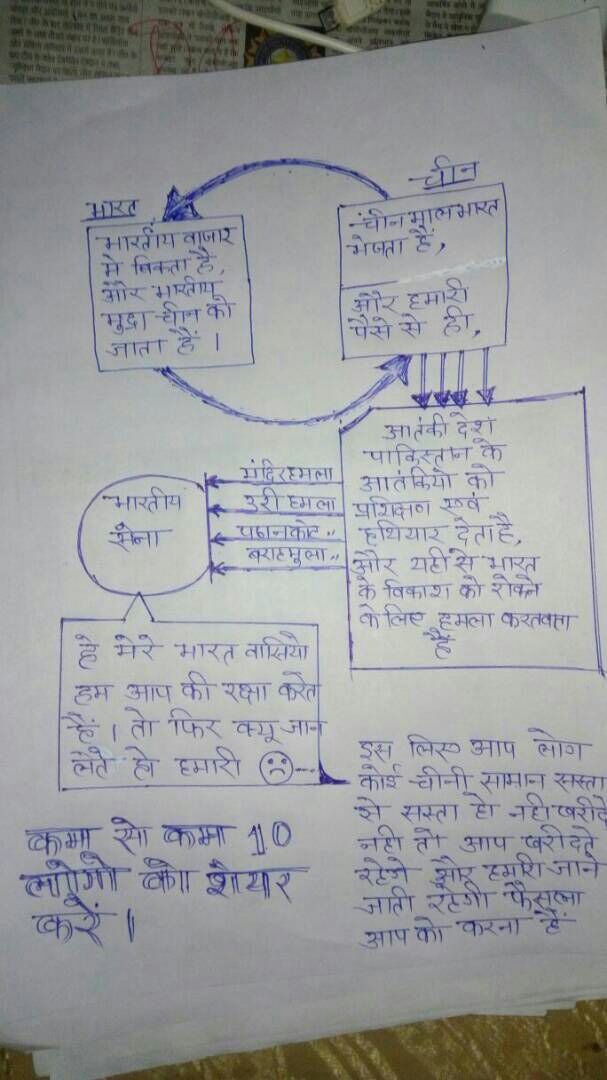 भारत
भारतीय बाजार
मे बिकता है,
और भारतीय
मुद्रा चीन को
जाता हैं ।
चीन
चीन माल भारत
भेजता हैं,
और हमारी
पैसे से ही,
आतंकी देश
पाकिस्तान के
आतंकियो को
प्रशिक्षण एवं
हथियार देता है,
और यही से भारत
के विकाश को रोकने
के लिए हमला करवाता
हैं
मंदिर हमला
उरी हमला
पठानकोट "
बारामूला "
भारतीय
सेना
हे मेरे भारत वासियो
हम आप की रक्षा करते
हैं । तो फिर क्यू जान
लेते हो हमारी
इस लिए आप लोग
कोई चीनी सामान सस्ता
से सस्ता हो नही खरीदे
नही तो आप खरीदते
रहेगे और हमारी जाने
जाती रहेगी फैसला
आप को करना हैं
कम से कम 10
लोगो को शेयर
करें ।